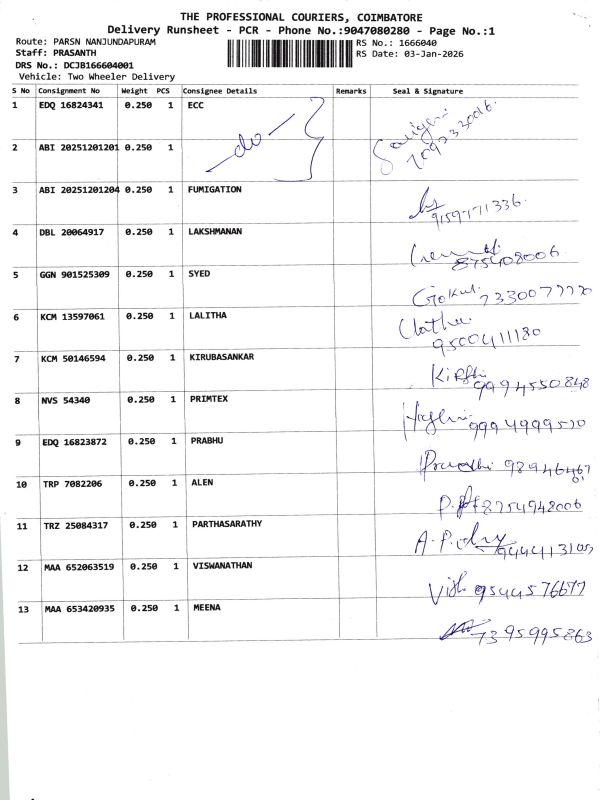 THE PROFESSIONAL COURIERS, COIMBATORE
Delivery Runsheet - PCR - Phone No.:9047080280 - Page No.:1
Route: PARSN NANJUNDAPURAM
RS No.: 1666040
Staff: PRASANTH
RS Date: 03-Jan-2026
DRS No.: DCJB166604001
Vehicle: Two Wheeler Delivery
S No Consignment No Weight PCS Consignee Details Remarks Seal & Signature
1 EDQ 16824341 0.250 1 ECC
2 ABI 20251201201 0.250 1 —do—
3 ABI 20251201204 0.250 1 FUMIGATION
9159771336
4 DBL 20064917 0.250 1 LAKSHMANAN
875408006
5 GGN 901525309 0.250 1 SYED
Gokul
6 KCM 13597061 0.250 1 LALITHA
9500411180
7 KCM 50146594 0.250 1 KIRUBASANKAR
9994550848
8 NVS 54340 0.250 1 PRIMTEX
9994999510
9 EDQ 16823872 0.250 1 PRABHU
10 TRP 7082206 0.250 1 ALEN
8754942006
11 TRZ 25084317 0.250 1 PARTHASARATHY
12 MAA 652063519 0.250 1 VISWANATHAN
13 MAA 653420935 0.250 1 MEENA
7395995863